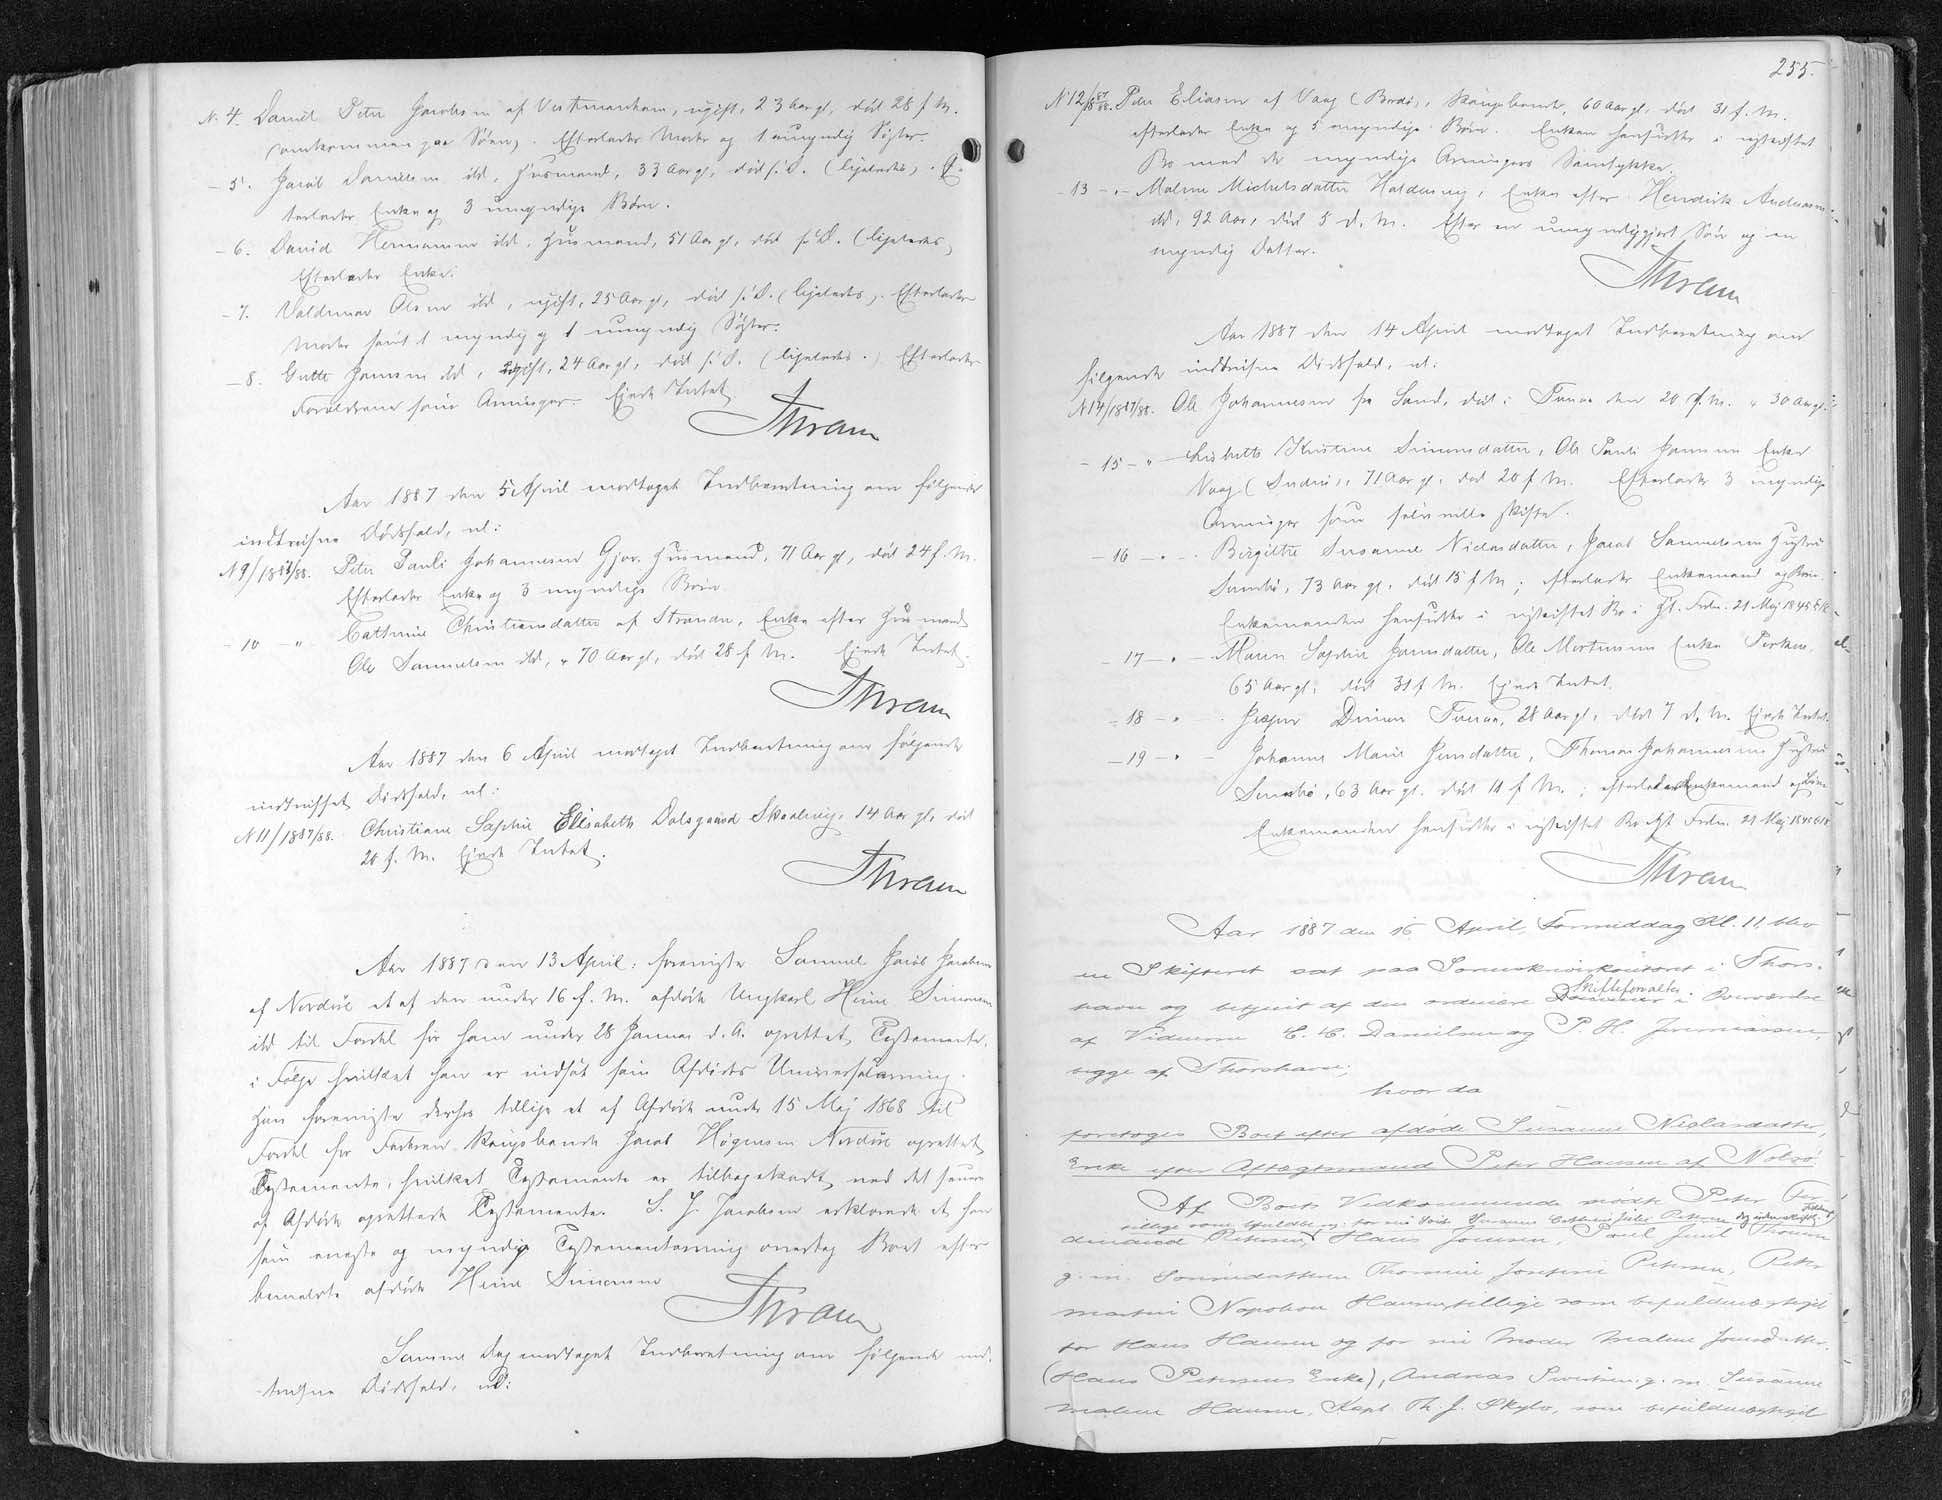 N. 4. Daniel Peter Jacobsen af Vestmanhavn, ugift, 23 Aar gl, død 28 f. M.
omkommen paa Søen, . Efterlader Moder og 1 umyndig Søster.
- 5. Jacob Danielsen ibd, Husmand, 33 Aar gl, død s. D. (ligeledes) . E-
terlader Enke og 3 umyndige Børn.
- 6. David Hermansen ibd, Husmand, 51 Aar gl, død s. D. (ligeledes)
Efterlader Enke.
- 7. Valdemar Olsen ibd, ugift, 25 Aar gl, død s. D. (ligeledes). Efterlader
Moder samt 1 myndig og 1 umyndig Søster.
- 8. Gutte Joensen ibd, ugift, 24 Aar gl, død s. D. (ligeledes.) Efterlader
Forældrene som Arvinger. Ejede Intet
Thram
Aar 1887 den 5 April modtaget Indberetning om følgende
indtrufne Dødsfald, nl:
N 9/1887/88. Peter Pauli Johannesen Gjov. Husmand, 71 Aar gl, død 24 f. M.
Efterlader Enke og 3 myndige Børn.
- 10 - " Cathrine Christiansdatter af Strende, Enke efter Husmand
Ole Samuelsen ibd, " 70 Aar gl, død 28 f. M. Ejede Intet.
Thram
Aar 1887 den 6 April modtaget Indberetning om følgende
indtruffet Dødsfald, nl:
N 11/1887/88. Christiane Sophie Elisabeth Dalsgaard Skaalevig, 14 Aar gl, død
20 f. M. Ejede Intet.
Thram
Aar 1887 den 13 April, foreviste Samuel Jacob Jacobsen
af Nordøre et af den under 16 f. M. afdøde Ungkarl Heine Simonsen
ibd til Fordel for ham under 28 Januar d. A. oprettet Testamente,
i Følge hvilket han er indsat som Afdødes Universalarving.
Han foreviste derhos tillige et af Afdøde under 15 Maj 1868 til
Fordel for Faderen Kongsbonde Jacob Høgnesen Nordøre oprettet
Testamente, hvilket Testamente er tilbagekaldt ved det senere
af Afdøde oprettede Testamente. S. J. Jacobsen erklærede at han
som eneste og myndige Testamentarving overtog Boet efter
bemeldte afdøde Heine Simonsen
Thram
Samme Dag modtaget Indberetning om følgende ind-
trufne Dødsfald, nl:
255.
N 12/1887/88. Peder Eliasen af Vaag (Bordø), Kongsbonde, 60 Aar gl, død 31 f. M.
efterlader Enke og 5 myndige Børn. Enken hensidder i uskiftet
Bo med de myndige Arvingers Samtykke.
- 13 - " - Malene Michelsdatter Haldersvig, Enke efter Hendrik Andreasen
ibd, 92 Aar, død 5 d. M. Efter en umyndiggjort Søn og en
myndig Datter.
Thram
Aar 1887 den 14 April modtaget Indberetning om
følgende indtrufne Dødsfald, nl:
N 14/1887/88. Ole Johannesen fra Sand, død i Funæs den 20 f. M. " 30 Aar gl.
- 15 - " Lisbeth Kristine Simonsdatter, Ole Pauli Joensens Enke
Vaag (Suderø), 71 Aar gl, død 20 f. M. Efterlader 3 myndige
Arvinger som selv ville skifte.
- 16 - " - Birgitte Susanne Niclasdatter, Jacob Samuelsens Hustru
Sumbø, 73 Aar gl, død 15 f. M; efterlader Enkemand og Børn.
Enkemanden hensidder i uskiftet Bo i H.t. Frdn. 21 Maj 1845 § 18
- 17 - " - Maren Sophie Joensdatter, Ole Mortensens Enke Porkere,
65 Aar gl, død 31 f. M. Ejede Intet.
- 18 - " - Jesper Dimon 28 Aar gl, død 7 d. M. Ejede Intet.
- 19 - " - Johanne Marie Jensdatter, Thomas Johannesens Hustru
Sumbø, 63 Aar gl. død 11 f. M.; efterlader Enkemand og Børn
Enkemanden hensidder i uskiftet Bo Hft Frdn. 21 Maj 1845 § 18
Thram
Aar 1887 den 16 April, Formiddag Kl. 11, blev
en Skifteret sat paa Sorenskriverkontoret i Thors-
Skifteforvalter
havn og betjent af den ordinære Dommer i Overværelse
af Vidnerne C. C. Danielsen og P. H. Jeremiassen,
begge af Thorshavn;
hvor da
foretoges Boet efter afdøde Susanne Niclasdatter,
Enke efter Aftægtsmand Peter Hansen af Nolsø
Af Boets Vedkommende mødte Peter Fer-
tillige som befuldm. for sin Susanne Cathrine
dinand Petersen, Hans Joensen, Poul Juul Thomsen
g. m. Sønnedatteren Thomine Josefine Petersen, Peter
Martin Napoleon Hansen, tillige som befuldmægtiget
for Hans Hansen og for sin Moder Malene Joensdatter
(Hans Petersens Enke), Andreas Sivertsen g. m. Susanne
Malene Hansen, Kapt. Th. J. Skylv, som befuldmægtiget